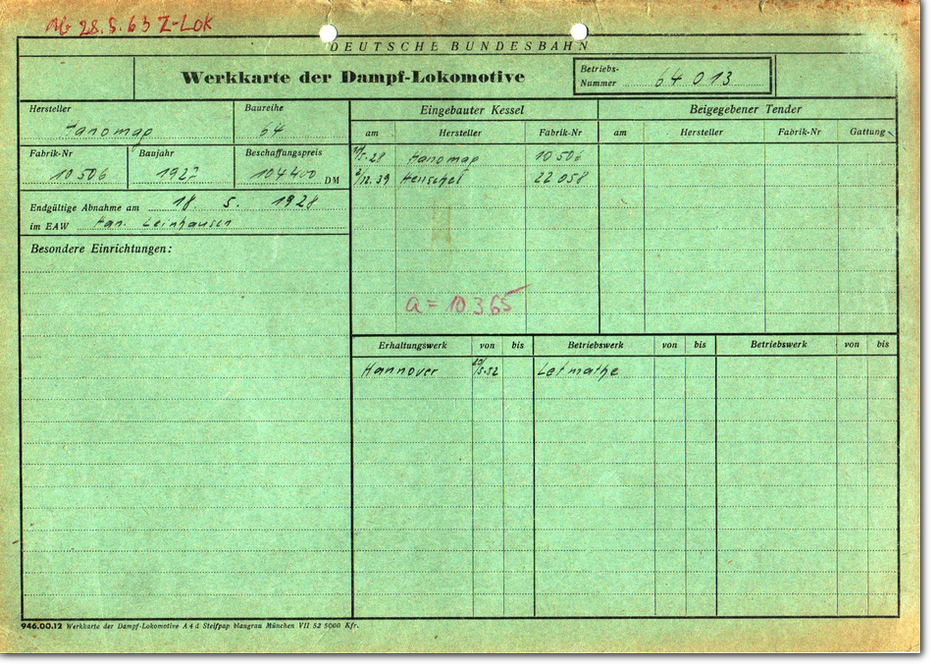 Ab 28.5.63 Z-Lok
DEUTSCHE BUNDESBAHN
Werkkarte der Dampf-Lokomotive
Betriebs-Nummer 64 013
Hersteller Hanomag
Baureihe 64
Fabrik-Nr 10506
Baujahr 1927
Beschaffungspreis 104400 DM
Endgültige Abnahme am 18. 5. 1928
im EAW Han. Leinhausen
Besondere Einrichtungen:
Eingebauter Kessel
am Hersteller Fabrik-Nr
5.28 Hanomag 10506
2/12.39 Henschel 22058
a = 10365
Beigegebener Tender
am Hersteller Fabrik-Nr Gattung
Erhaltungswerk von bis Betriebswerk von bis Betriebswerk von bis
Hannover Letmathe
946.00.12 Werkkarte der Dampf-Lokomotive A 4 d Steifpap blaugrau München VII 52 5000 Kfr.